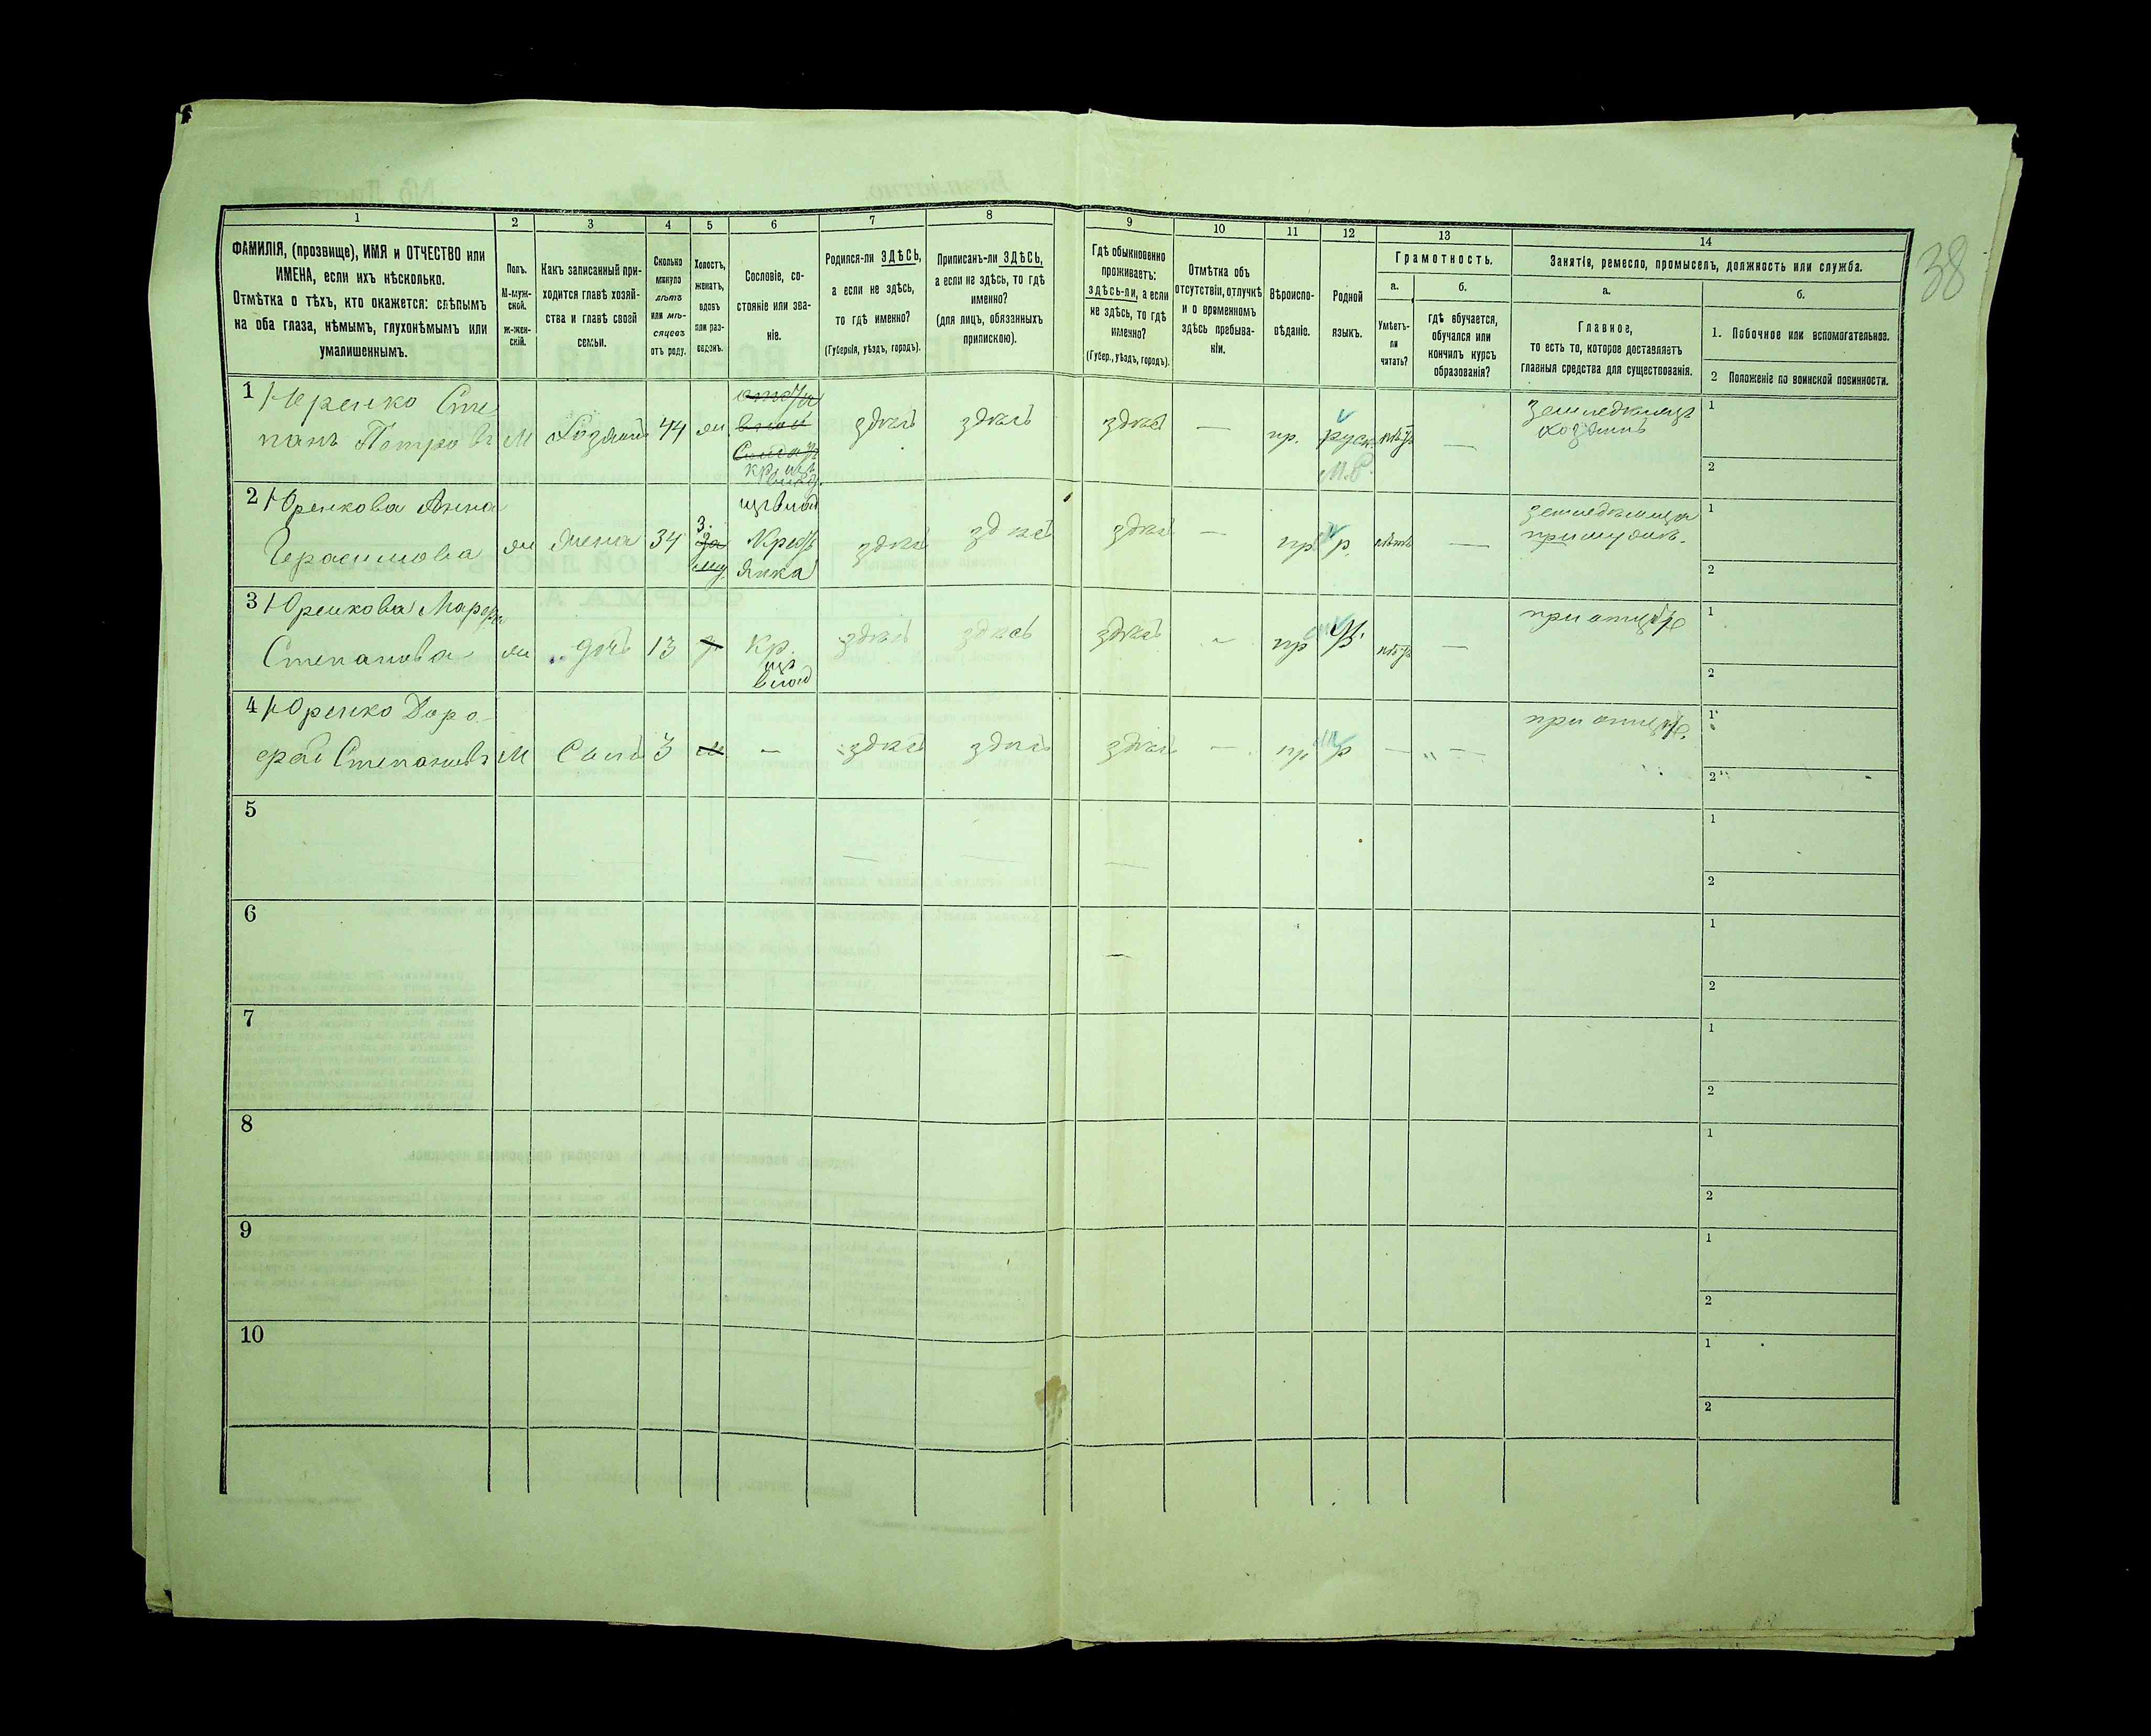 38
1 2 3 4 5 6 7 8 9 10 11 12 13 14
ФАМИЛІЯ, (прозвище), ИМЯ и ОТЧЕСТВО или
ИМЕНА, если ихъ нѣсколько.
Отмѣтка о тѣхъ, кто окажется: слѣпымъ
на оба глаза, нѣмымъ, глухонѣмымъ или
умалишеннымъ.
Полъ.
М-муж-
ской.
ж-жен-
скій.
Какъ записанный при-
ходится главѣ хозяй-
ства и главѣ своей
семьи.
Сколько
минуло
лѣтъ
или мѣ-
сяцевъ
отъ роду.
Холостъ,
женатъ,
вдовъ
или раз-
веденъ.
Сословіе, со-
стояніе или зва-
ніе.
Родился-ли ЗДѢСЬ,
а если не здѣсь,
то гдѣ именно?
(Губернія, уѣздъ, городъ).
Приписанъ-ли ЗДѢСЬ,
а если не здѣсь, то гдѣ
именно?
(для лицъ, обязанныхъ
припискою).
Гдѣ обыкновенно
проживаетъ:
здѣсь-ли, а если
не здѣсь, то гдѣ
именно?
(Губер., уѣздъ, городъ).
Отмѣтка объ
отсутствіи, отлучкѣ
и о временномъ
здѣсь пребыва-
ніи.
Вѣроиспо-
вѣданіе.
Родной
языкъ.
Грамотность.
а.
Умѣетъ-
ли
читать?
б.
гдѣ обучается,
обучался или
кончилъ курсъ
образованія?
Занятія, ремесло, промыселъ, должность или служба.
а.
Главное,
то есть то, которое доставляетъ
главныя средства для существованія.
б.
1. Побочное или вспомогательное.
2 Положеніе по воинской повинности.
1 Юренко Сте-
панъ Петровъ М Хозяинъ 44 ж. здѣсь здѣсь здѣсь — пр. руск. нѣтъ —
М.Р.
земледѣлецъ
хозяинъ
1
2
2 Юренкова Анна
Герасимова ж жена 34 з. Крестьянка здѣсь здѣсь здѣсь — пр р. нѣтъ —
1
2
3 Юренкова Марфа
Степанова ж дочь 13 кр. здѣсь здѣсь здѣсь - пр нѣтъ —
при отцѣ
1
2
4 Юренко Доро-
фей Степановъ М Сынъ 3 — здѣсь здѣсь здѣсь — пр р — " —
при отцѣ
1
2
5
1
2
6
1
2
7
1
2
8
1
2
9
1
2
10
1
2